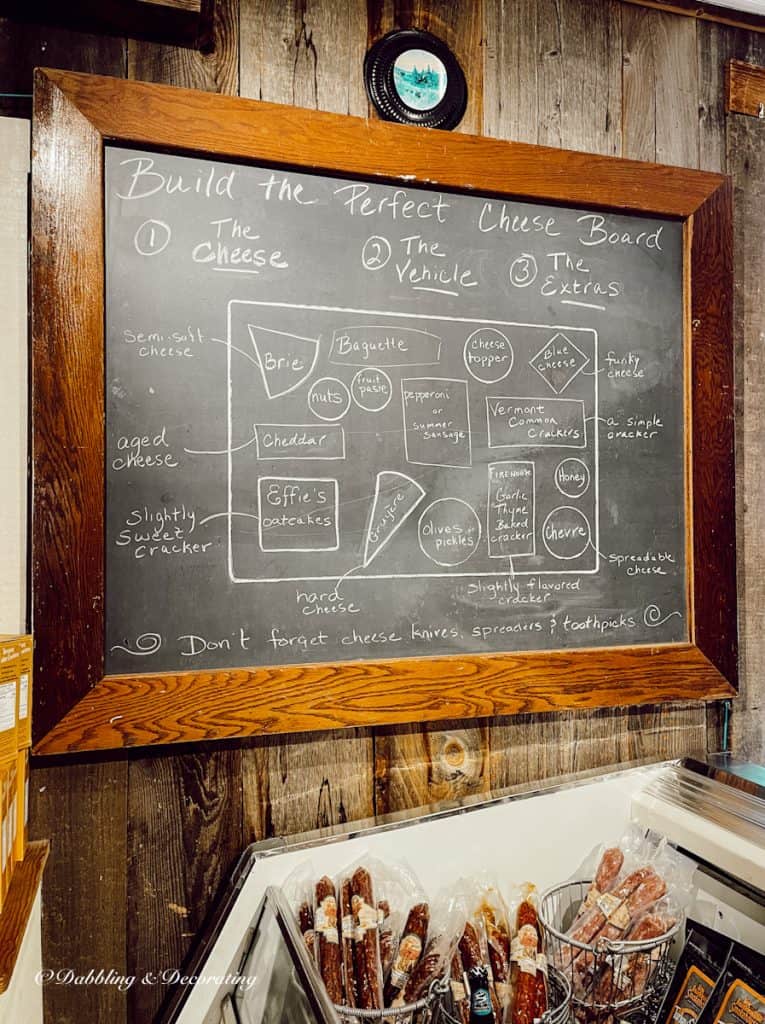 Build the Perfect Cheese Board
1 The Cheese
2 The Vehicle
3 The Extras
semi-soft
cheese
Brie
Baguette
cheese
topper
Blue
cheese
funky
cheese
nuts
fruit
paste
pepperoni
or
summer
sausage
Vermont
Common
Crackers
a simple
cracker
aged
cheese
Cheddar
Effie's
oatcakes
Slightly
Sweet
cracker
Gruyere
hard
cheese
Olives or
pickles
Firehouse
Garlic
Thyme
Baked
cracker
slightly flavored
cracker
Honey
Chevre
spreadable
cheese
Don't forget cheese knives, spreaders & toothpicks
©Dabbling & Decorating